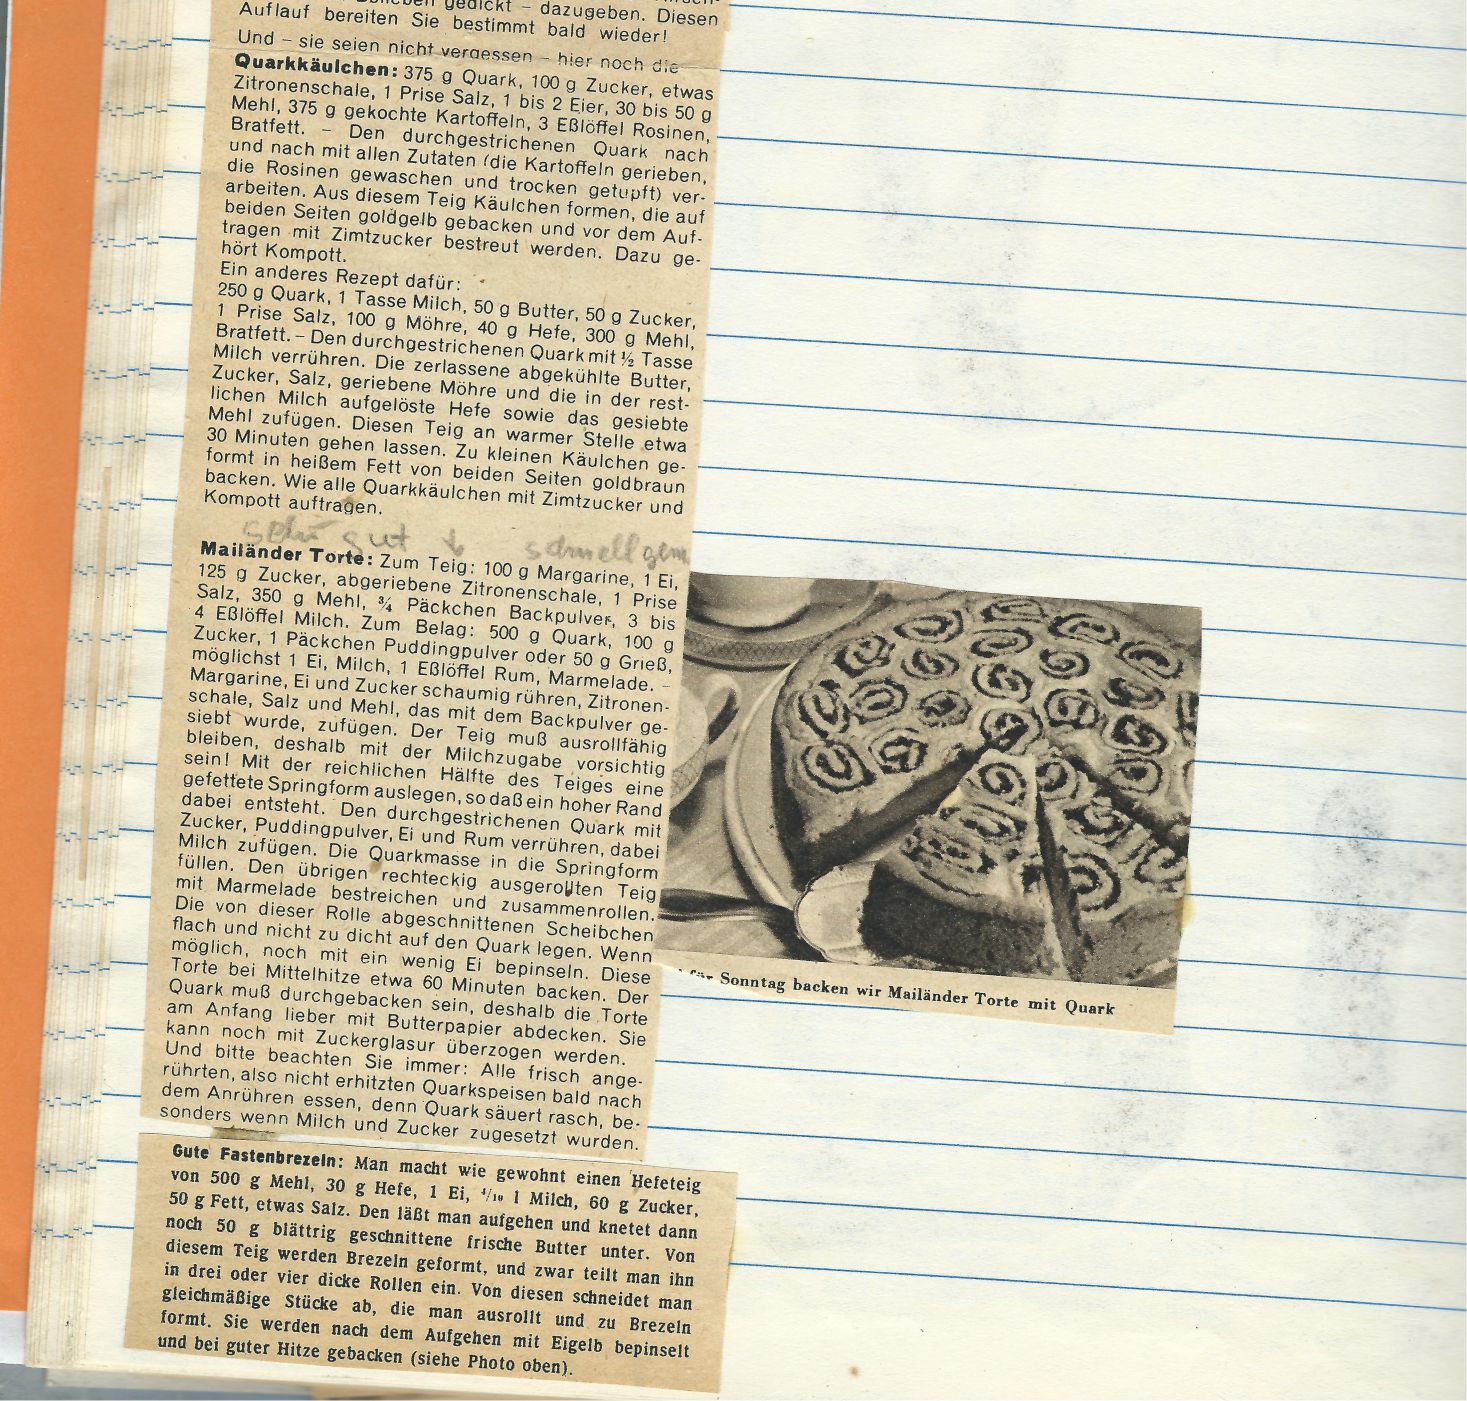 gedickt – dazugeben. Diesen
Auflauf bereiten Sie bestimmt bald wieder!
Und – sie seien nicht vergessen – hier noch die
Quarkkäulchen: 375 g Quark, 100 g Zucker, etwas
Zitronenschale, 1 Prise Salz, 1 bis 2 Eier, 30 bis 50 g
Mehl, 375 g gekochte Kartoffeln, 3 Eßlöffel Rosinen,
Bratfett. – Den durchgestrichenen Quark nach
und nach mit allen Zutaten (die Kartoffeln gerieben,
die Rosinen gewaschen und trocken getupft) ver-
arbeiten. Aus diesem Teig Käulchen formen, die auf
beiden Seiten goldgelb gebacken und vor dem Auf-
tragen mit Zimtzucker bestreut werden. Dazu ge-
hört Kompott.
Ein anderes Rezept dafür:
250 g Quark, 1 Tasse Milch, 50 g Butter, 50 g Zucker,
1 Prise Salz, 100 g Möhre, 40 g Hefe, 300 g Mehl,
Bratfett. – Den durchgestrichenen Quark mit ½ Tasse
Milch verrühren. Die zerlassene abgekühlte Butter,
Zucker, Salz, geriebene Möhre und die in der rest-
lichen Milch aufgelöste Hefe sowie das gesiebte
Mehl zufügen. Diesen Teig an warmer Stelle etwa
30 Minuten gehen lassen. Zu kleinen Käulchen ge-
formt in heißem Fett von beiden Seiten goldbraun
backen. Wie alle Quarkkäulchen mit Zimtzucker und
Kompott auftragen.
sehr gut schnell gem
Mailänder Torte: Zum Teig: 100 g Margarine, 1 Ei,
125 g Zucker, abgeriebene Zitronenschale, 1 Prise
Salz, 350 g Mehl, ¾ Päckchen Backpulver, 3 bis
4 Eßlöffel Milch. Zum Belag: 500 g Quark, 100 g
Zucker, 1 Päckchen Puddingpulver oder 50 g Grieß,
möglichst 1 Ei, Milch, 1 Eßlöffel Rum, Marmelade. –
Margarine, Ei und Zucker schaumig rühren, Zitronen-
schale, Salz und Mehl, das mit dem Backpulver ge-
siebt wurde, zufügen. Der Teig muß ausrollfähig
bleiben, deshalb mit der Milchzugabe vorsichtig
sein! Mit der reichlichen Hälfte des Teiges eine
gefettete Springform auslegen, so daß ein hoher Rand
dabei entsteht. Den durchgestrichenen Quark mit
Zucker, Puddingpulver, Ei und Rum verrühren, dabei
Milch zufügen. Die Quarkmasse in die Springform
füllen. Den übrigen rechteckig ausgerollten Teig
mit Marmelade bestreichen und zusammenrollen.
Die von dieser Rolle abgeschnittenen Scheibchen
flach und nicht zu dicht auf den Quark legen. Wenn
möglich, noch mit ein wenig Ei bepinseln. Diese
Torte bei Mittelhitze etwa 60 Minuten backen. Der
Quark muß durchgebacken sein, deshalb die Torte
am Anfang lieber mit Butterpapier abdecken. Sie
kann noch mit Zuckerglasur überzogen werden.
Und bitte beachten Sie immer: Alle frisch ange-
rührten, also nicht erhitzten Quarkspeisen bald nach
dem Anrühren essen, denn Quark säuert rasch, be-
sonders wenn Milch und Zucker zugesetzt wurden.
für Sonntag backen wir Mailänder Torte mit Quark
Gute Fastenbrezeln: Man macht wie gewohnt einen Hefeteig
von 500 g Mehl, 30 g Hefe, 1 Ei, ⁴/₁₀ l Milch, 60 g Zucker,
50 g Fett, etwas Salz. Den läßt man aufgehen und knetet dann
noch 50 g blättrig geschnittene frische Butter unter. Von
diesem Teig werden Brezeln geformt, und zwar teilt man ihn
in drei oder vier dicke Rollen ein. Von diesen schneidet man
gleichmäßige Stücke ab, die man ausrollt und zu Brezeln
formt. Sie werden nach dem Aufgehen mit Eigelb bepinselt
und bei guter Hitze gebacken (siehe Photo oben).